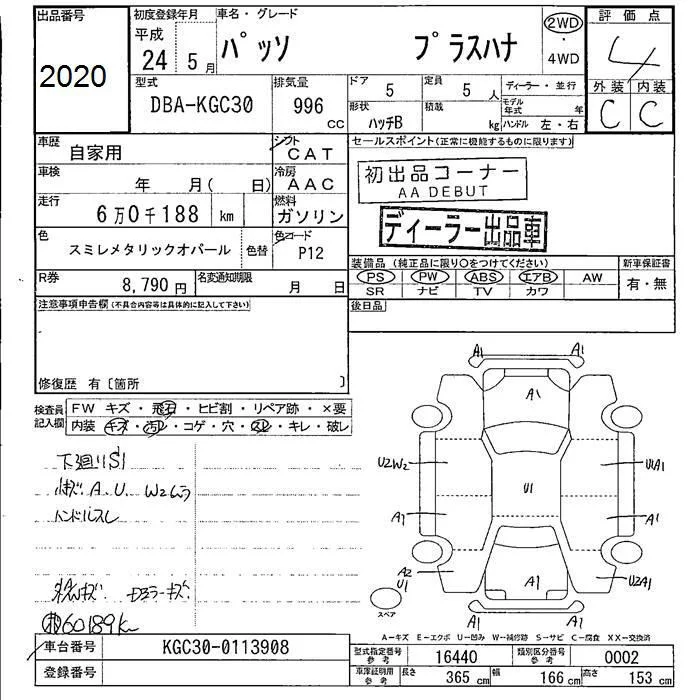 出品番号
2020
初度登録年月
平成
24年5月
車名・グレード
パッソ プラスハナ
2WD
・
4WD
評価点
4
外装 内装
C C
型式
DBA-KGC30
排気量
996
CC
ドア
5
定員
5人
形状
ハッチB
積載
kg
ディーラー・並行
モデル年式
年
ハンドル 左・右
車歴
自家用
シフト
CAT
車検
年 月( 日)
冷房
AAC
走行
6万0千188 km
燃料
ガソリン
色
スミレメタリックオパール
色替
色コード
P12
R券
8,790円
名変通知期限
月 日
セールスポイント(正常に機能するものに限ります)
初出品コーナー
AA DEBUT
ディーラー出品車
装備品 (純正品に限り○をつけてください)
PS PW ABS エアB AW
SR ナビ TV カワ
新車保証書
有・無
後日品
注意事項申告欄(不具合内容等は具体的に記入して下さい)
修復歴 有〔箇所 〕
検査員
記入欄
FW キズ・飛石・ヒビ割・リペア跡・×要
内装 キズ・汚レ・コゲ・穴・スレ・キレ・破レ
下廻りS1
小キズ A、U、W2ムラ
ハンドルスレ
ドアミラーキズ
60189km
A1 A1
A1
U2W2
U1A1
U1
A1
A1
A2
U1
A1
U2A1
A1 A1
スペア
A-キズ E-エクボ U-凹み W-補修跡 S-サビ C-腐食 XX-交換済
車台番号
KGC30-0113908
登録番号
型式指定番号
参考
16440
類別区分番号
参考
0002
車庫証明用
参考
長さ
365cm
幅
166cm
高さ
153cm